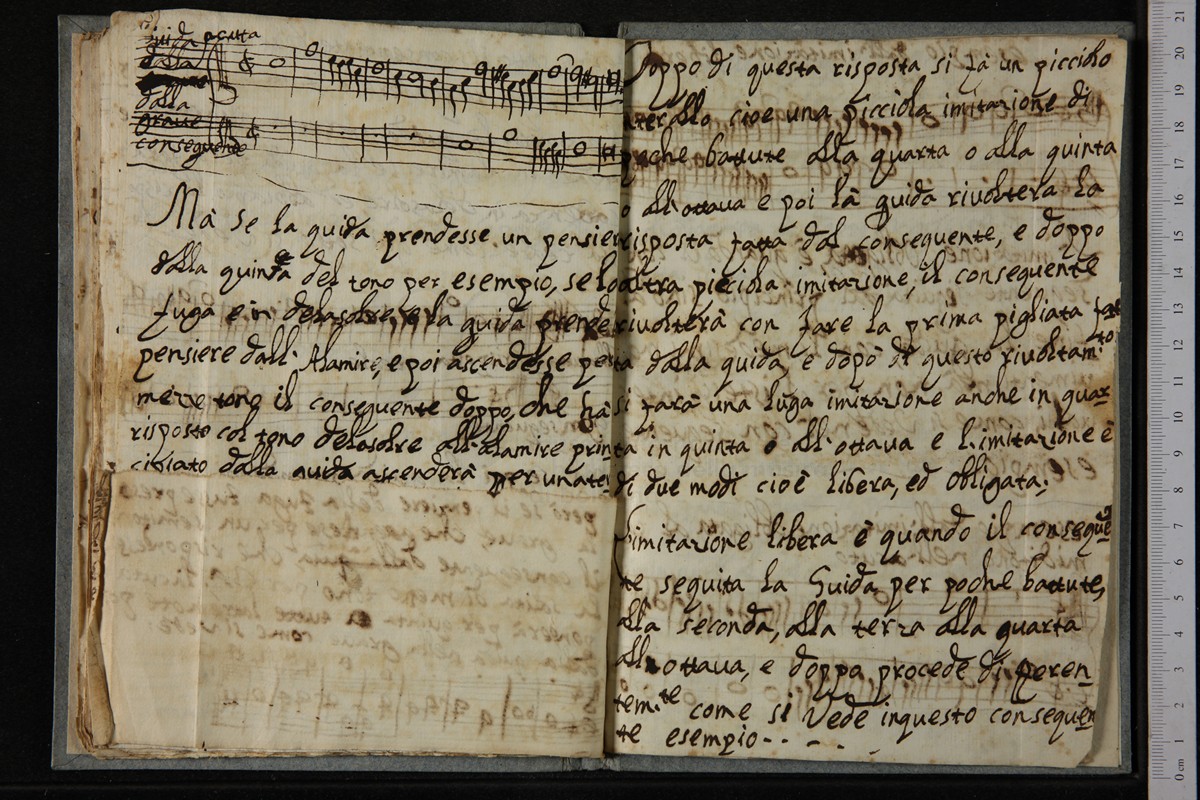 guida acuta
della
dalla
grave
conseguente
Mà se la guida prendesse un pensiere
dalla quinta del tono per esempio, se la
fuga è in delasolre e la guida prende
pensiere dall' Alamire, e poi ascendesse per
mezzo tono il conseguente doppo che hà
risposto col tono delasolre all' Alamire prin
cipiato dalla guida ascenderà per una ter
Doppo di questa risposta si fà un picciolo
interallo cioe una picciola imitazione di
poche battute alla quarta o alla quinta
o all'ottava e poi la guida rivolterà la
risposta fatta dal conseguente, e doppo
altra picciola imitazione, il conseguente
rivolterà con fare la prima pigliata fat
ta dalla guida, e dopò di questo rivoltam.to
si farà una luga imitazione anche in quar
ta in quinta o all'ottava e l'imitazione è
di due modi cioè libera, ed obligata;
L'imitazione libera è quando il consegue
te seguita la Guida per poche battute,
alla seconda, alla terza alla quarta
all ottava, e doppo procede diferen
tem.te come si Vede inquesto conseguen
te esempio - - - -